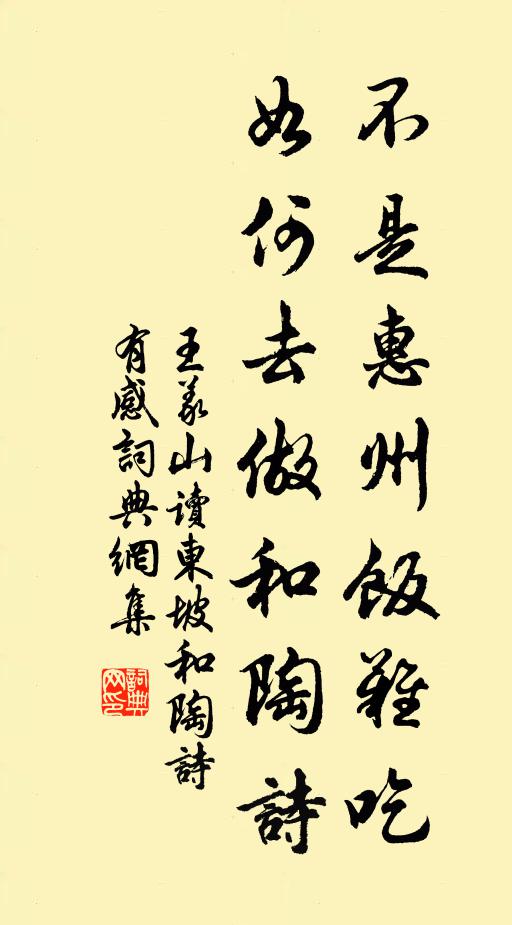 不是惠州飯難吃
如何去做和陶詩
王義山讀東坡和陶詩
有感詞典網集
詞典
网印